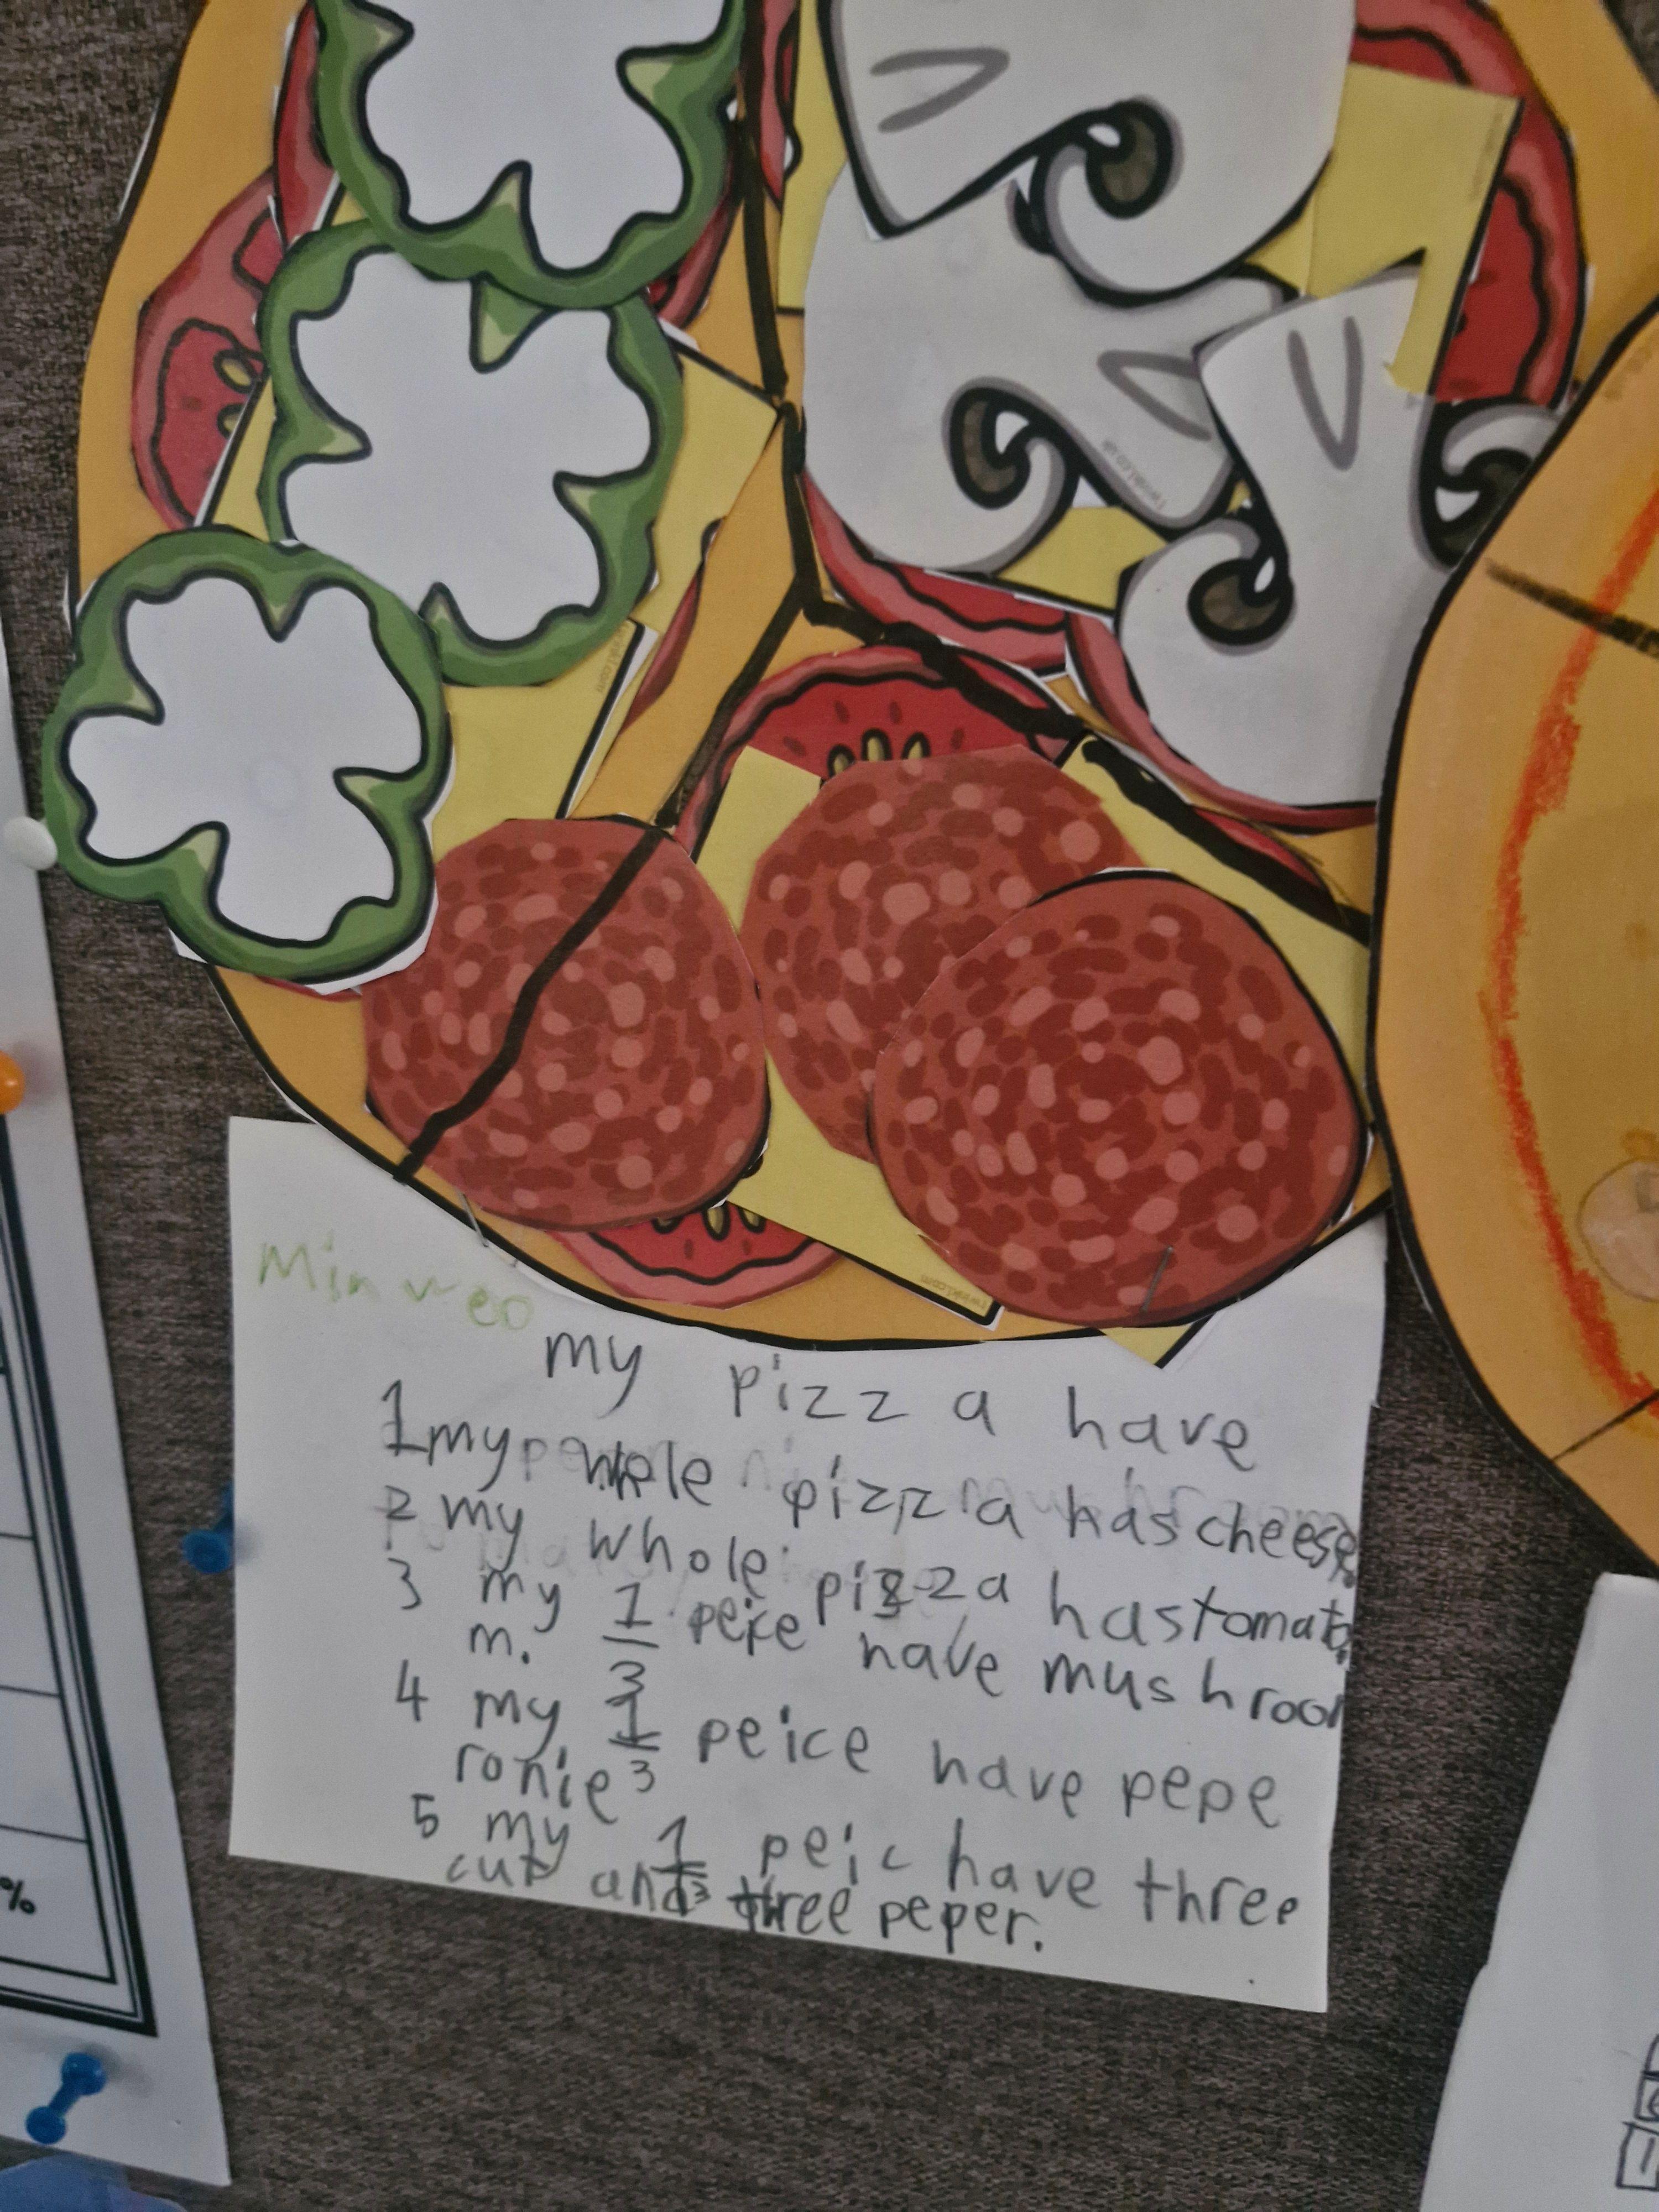 Minweo
my pizza have
1 my whole pizza has cheese.
2 my whole pizza has tomato.
3 my 1/3 peice have mushroo
m.
4 my 1/3 peice have pepe
ronie
5 my 1/3 peic have three
cut and three peper.
twinkl.co.uk
twinkl.com
twinkl.com
%